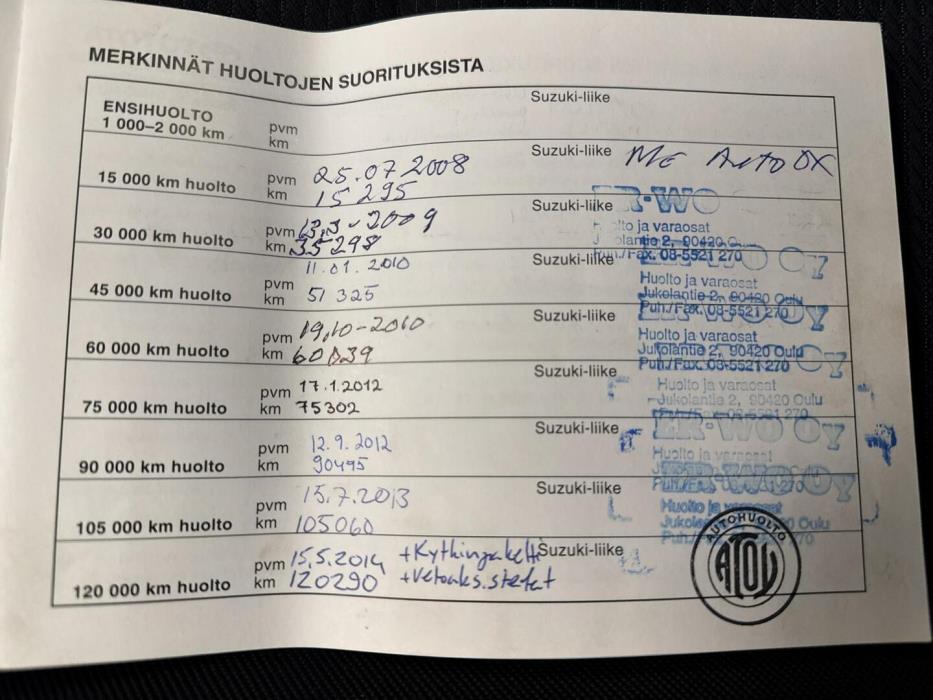 MERKINNÄT HUOLTOJEN SUORITUKSISTA
ENSIHUOLTO
1 000–2 000 km
pvm
km
Suzuki-liike
15 000 km huolto
pvm 25.07.2008
km 15 295
Suzuki-liike
30 000 km huolto
pvm 13.3-2009
km 35298
Suzuki-liike
ER-WO
Huolto ja varaosat
Jukolantie 2, 90420 Oulu
Puh./Fax. 08-5521 270
45 000 km huolto
pvm 11.01.2010
km 51 325
Suzuki-liike
ER-WO OY
Huolto ja varaosat
Jukolantie 2, 90420 Oulu
Puh./Fax. 08-5521 270
60 000 km huolto
pvm 19.10-2010
km 60039
Suzuki-liike
ER-WO OY
Huolto ja varaosat
Jukolantie 2, 90420 Oulu
Puh./Fax. 08-5521 270
75 000 km huolto
pvm 17.1.2012
km 75302
Suzuki-liike
ER-WO OY
Huolto ja varaosat
Jukolantie 2, 90420 Oulu
Puh./Fax. 08-5521 270
90 000 km huolto
pvm 12.9.2012
km 90495
Suzuki-liike
ER-WO OY
Huolto ja varaosat
105 000 km huolto
pvm 15.7.2013
km 105060
Suzuki-liike
ER-WO OY
Huolto ja varaosat
Jukolantie 2, 90420 Oulu
120 000 km huolto
pvm 15.5.2014 +Kythinpaketti
km 120290 +Vetoaks.stefat
Suzuki-liike
AUTOHUOLTO
ATOY